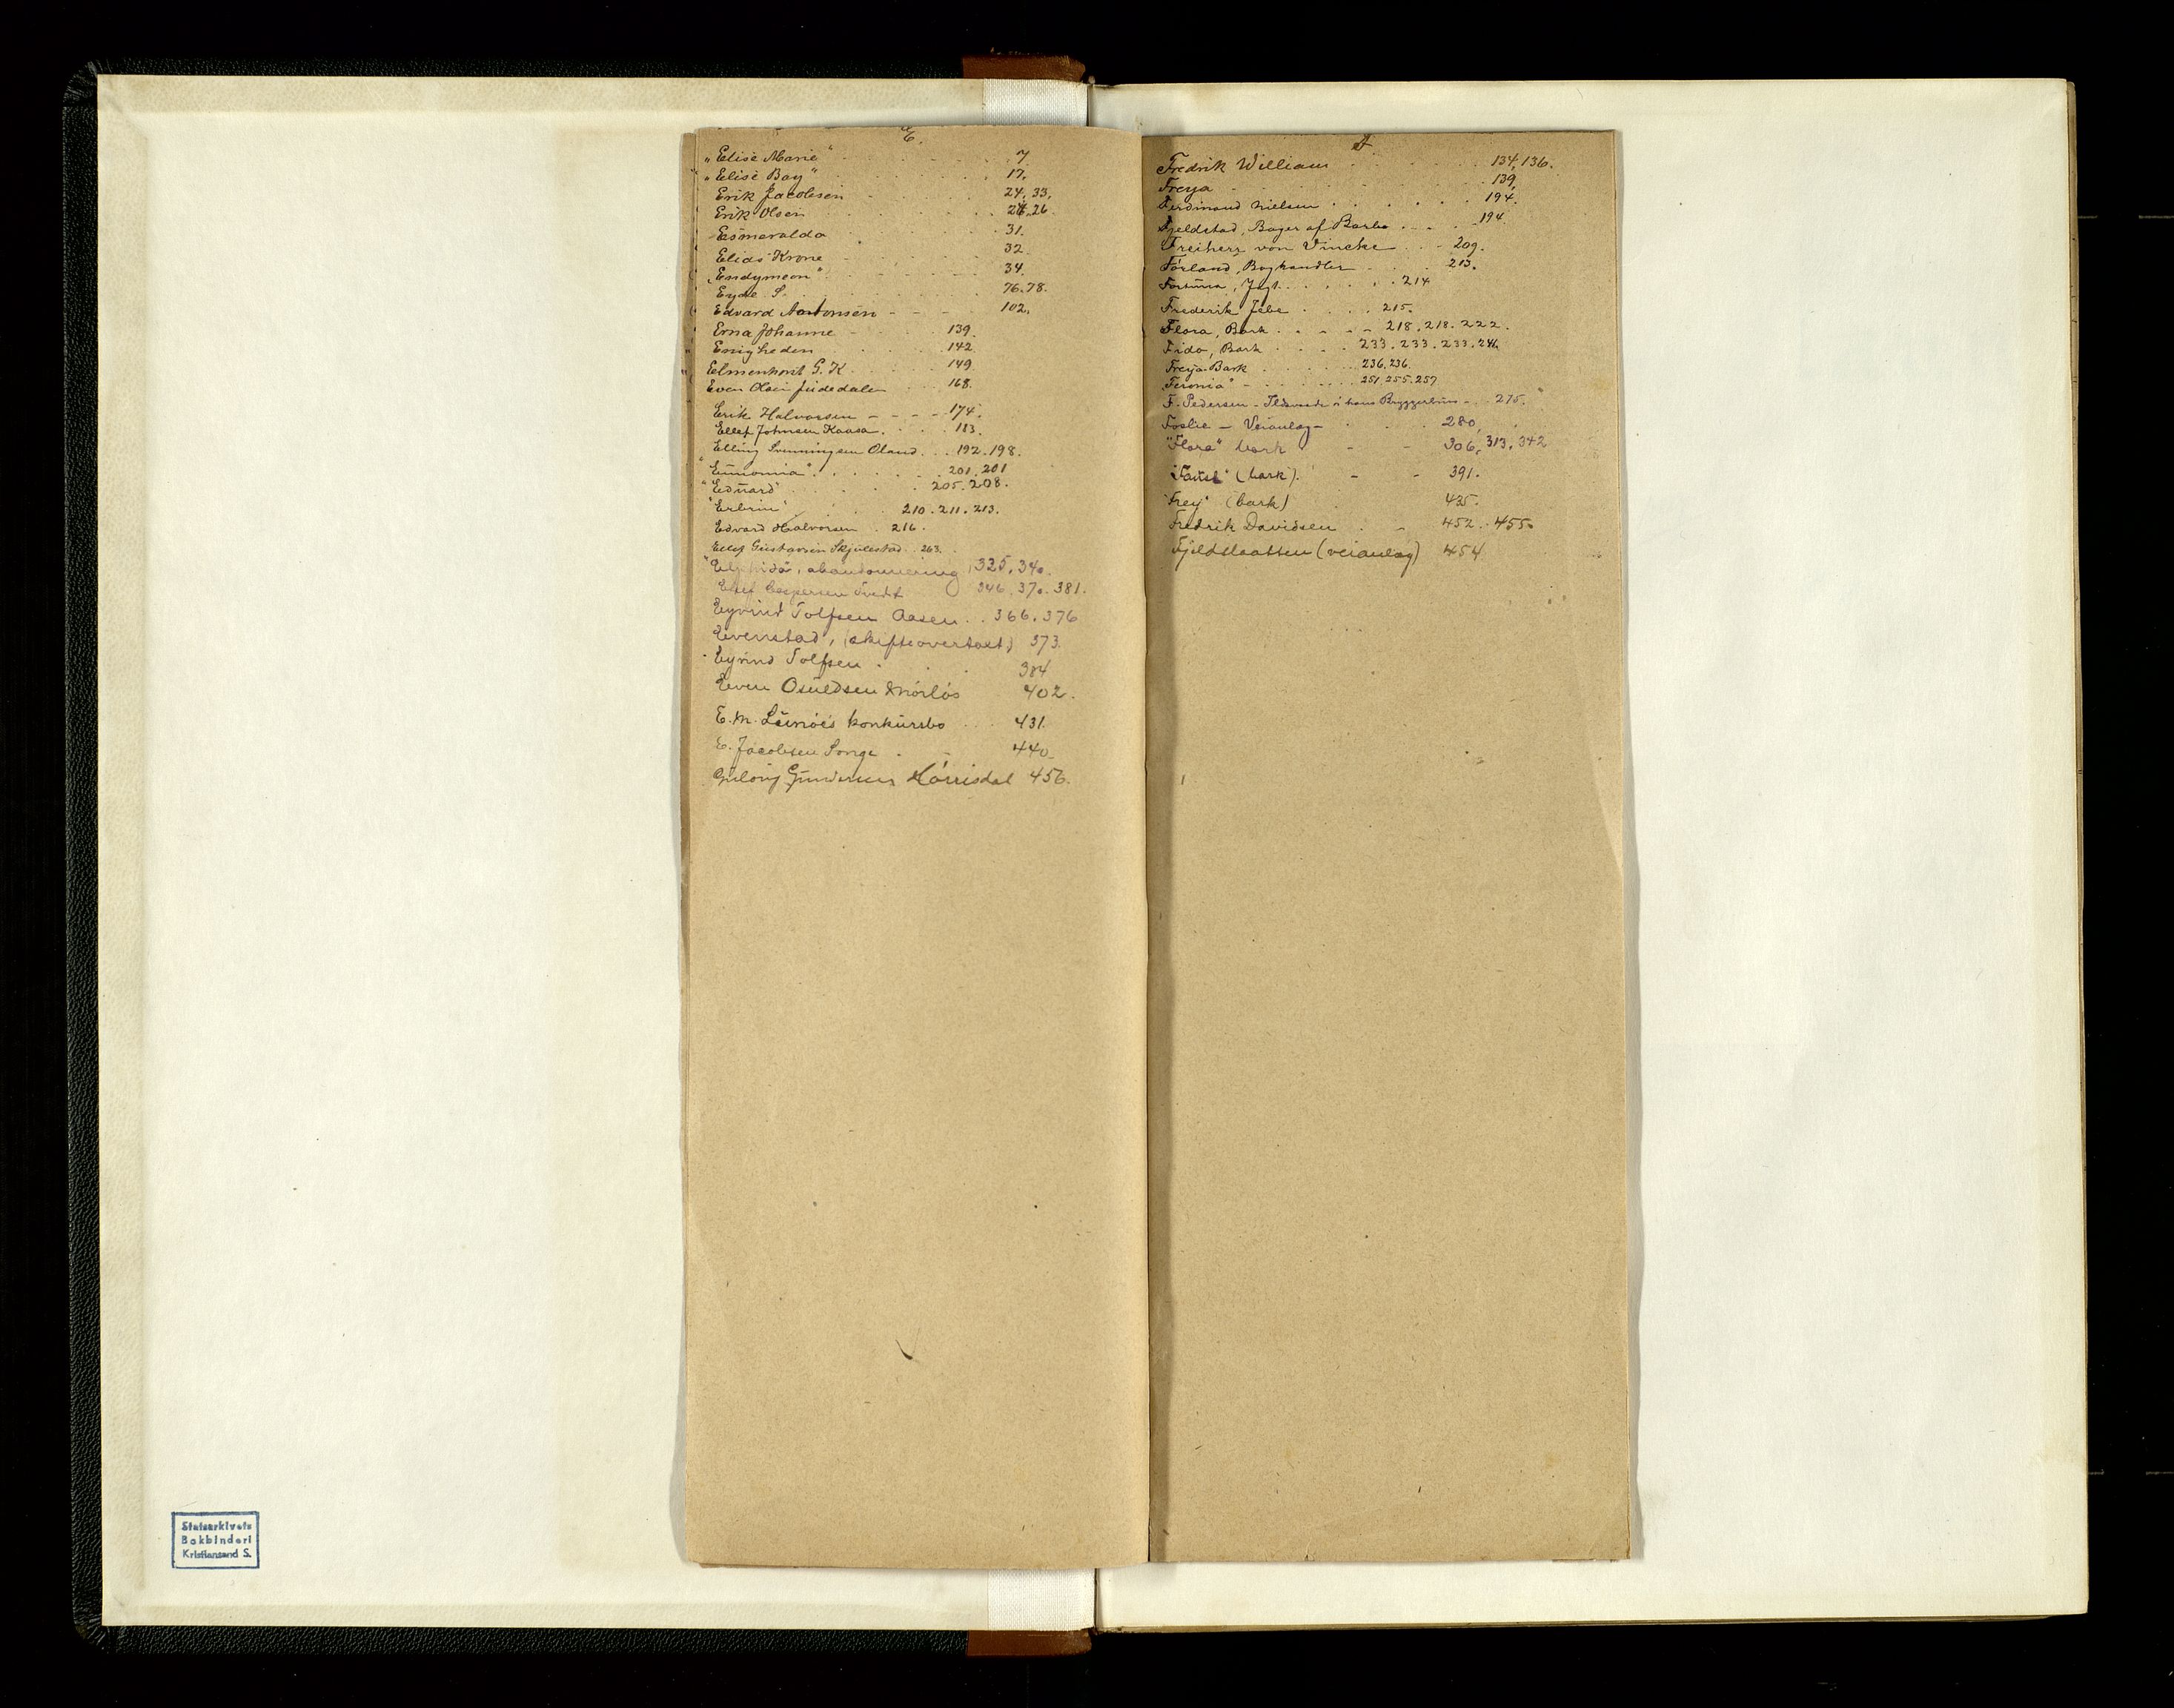 E.
"Elise Marie" 7
"Elise Bay" 17.
Erik Jacobsen 24, 33,
Erik Olsen 24.26
Esmeralda 31.
Elias Krone 32
"Endymeon" 34.
Eyde S. 76.78.
Edvard Aantonsen 102.
Erna Johanne 139.
Enigheden 142
Elmenhorst G. K 149
Even Olsen 168.
Erik Halvorsen 174.
Ellef Johnsen Kaasa 183.
Elling Svenningsen Oland 192.198.
"Eunomia" 201.201
"Eduard" 205.208.
"Erbrin" 210.211.213.
Edvard Halvorsen 216.
Ellef Gustavsen Skjulestad 263.
"Elphida", abandonnering 325, 340.
Ellef Caspersen Tvedt 346, 370. 381.
Eyvind Tolfsen Aasen 366. 376
Evenstad, (skifteovertaxt) 373.
Eyvind Tolfsen 384
Even Osuldsen 402.
E. M. konkursbo 431.
E. Jacobsen Songe 440.
456.
F.
Fredrik William 134, 136.
Freya 139,
Ferdinand Nielsen 194.
Fjeldstad, Bager af Barbo 194
Freiherr von Vincke 209.
Förland, Boghandler 213.
Fortuna, Jagt 214
Frederik Jebe 215.
Flora, Bark 218.218.222.
Fido, Bark 233.233.233.241.
Freya-Bark 236.236.
"Feronia" 251.255.257
F. Pedersen - Ildsvaade i hans Bryggerhus - 275.
Foslie - Veianlæg - 280.
"Flora" bark 306, 313, 342
"Faust" (bark). 391.
"Frey" (bark) 435.
Fredrik Davidsen 452. 455.
Fjeldslaatten (veianlæg) 454
Statsarkivets
Bokbinderi
Kristiansand S.